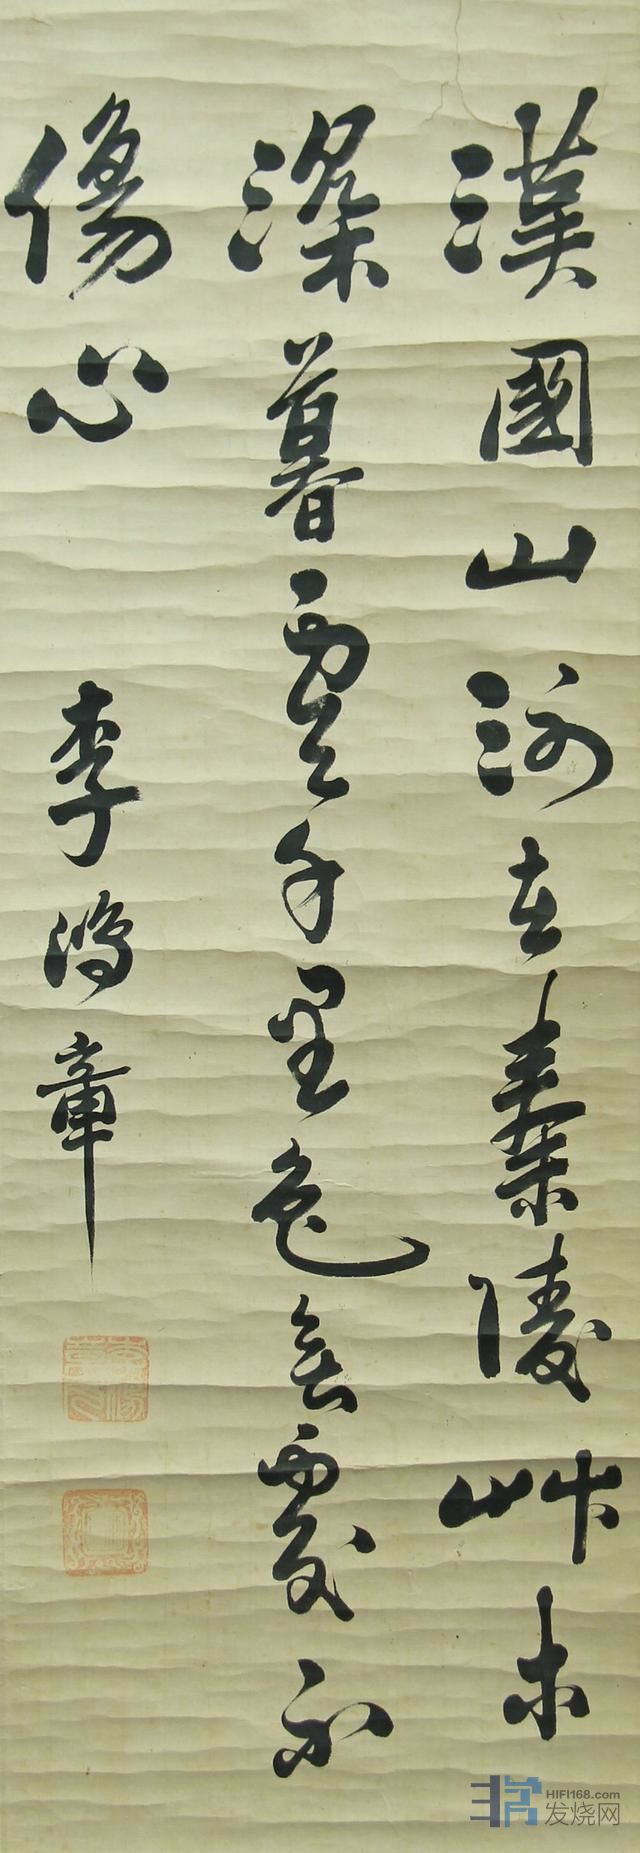 漢國山河在秦陵艸木
深暮雲千里色無處不
傷心
李鴻章
HIFI168.com
发烧网